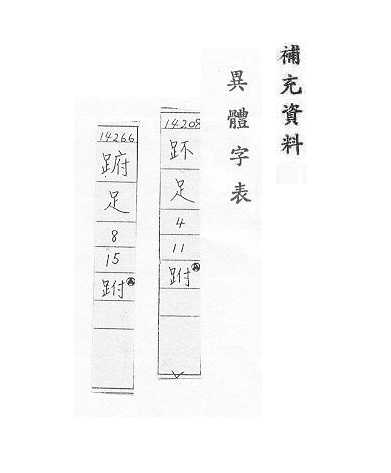 補充資料
異體字表
14208
足
4
11
跗
14266
足
8
15
跗